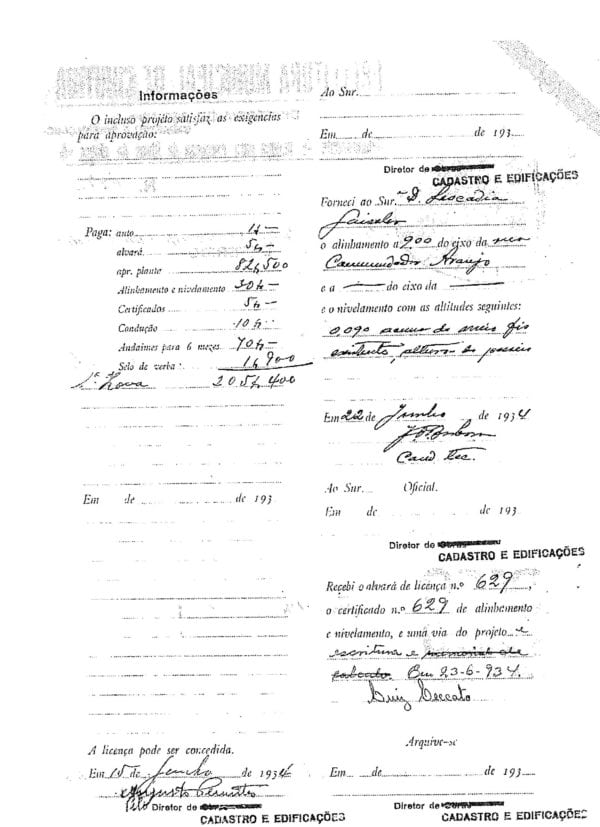 Informações
O incluso projéto satisfaz as exigencias
para aprovação:
Paga: auto 1$—
alvará 5$—
apr. planta 82$500
Alinhamento e nivelamento 30$—
Certificados 5$—
Condução 10$—
Andaimes para 6 mezes 70$—
Selo de verba 1$900
205$400
Em de de 193
A licença pode ser concedida.
Em 15 de Junho de 1934
Augusto
Pelo Diretor de
CADASTRO E EDIFICAÇÕES
Ao Sur.
Em de de 193
Diretor de
CADASTRO E EDIFICAÇÕES
Forneci ao Sur. D. Leocadia
o alinhamento a 900 do eixo da rua
Commendador Araujo
e a — do eixo da —
e o nivelamento com as altitudes seguintes:
0,090 acima do meio fio
existente, altura do passeio
Em 22 de Junho de 1934
Cand. Tec.
Ao Sur. Oficial.
Em de de 193
Diretor de
CADASTRO E EDIFICAÇÕES
Recebi o alvará de licença n.º 629,
o certificado n.º 629 de alinhamento
e nivelamento, e uma via do projeto e
escritura e memorial de
Em 23-6-934
Luiz Ceccato
Arquive-se
Em de de 193
Diretor de
CADASTRO E EDIFICAÇÕES